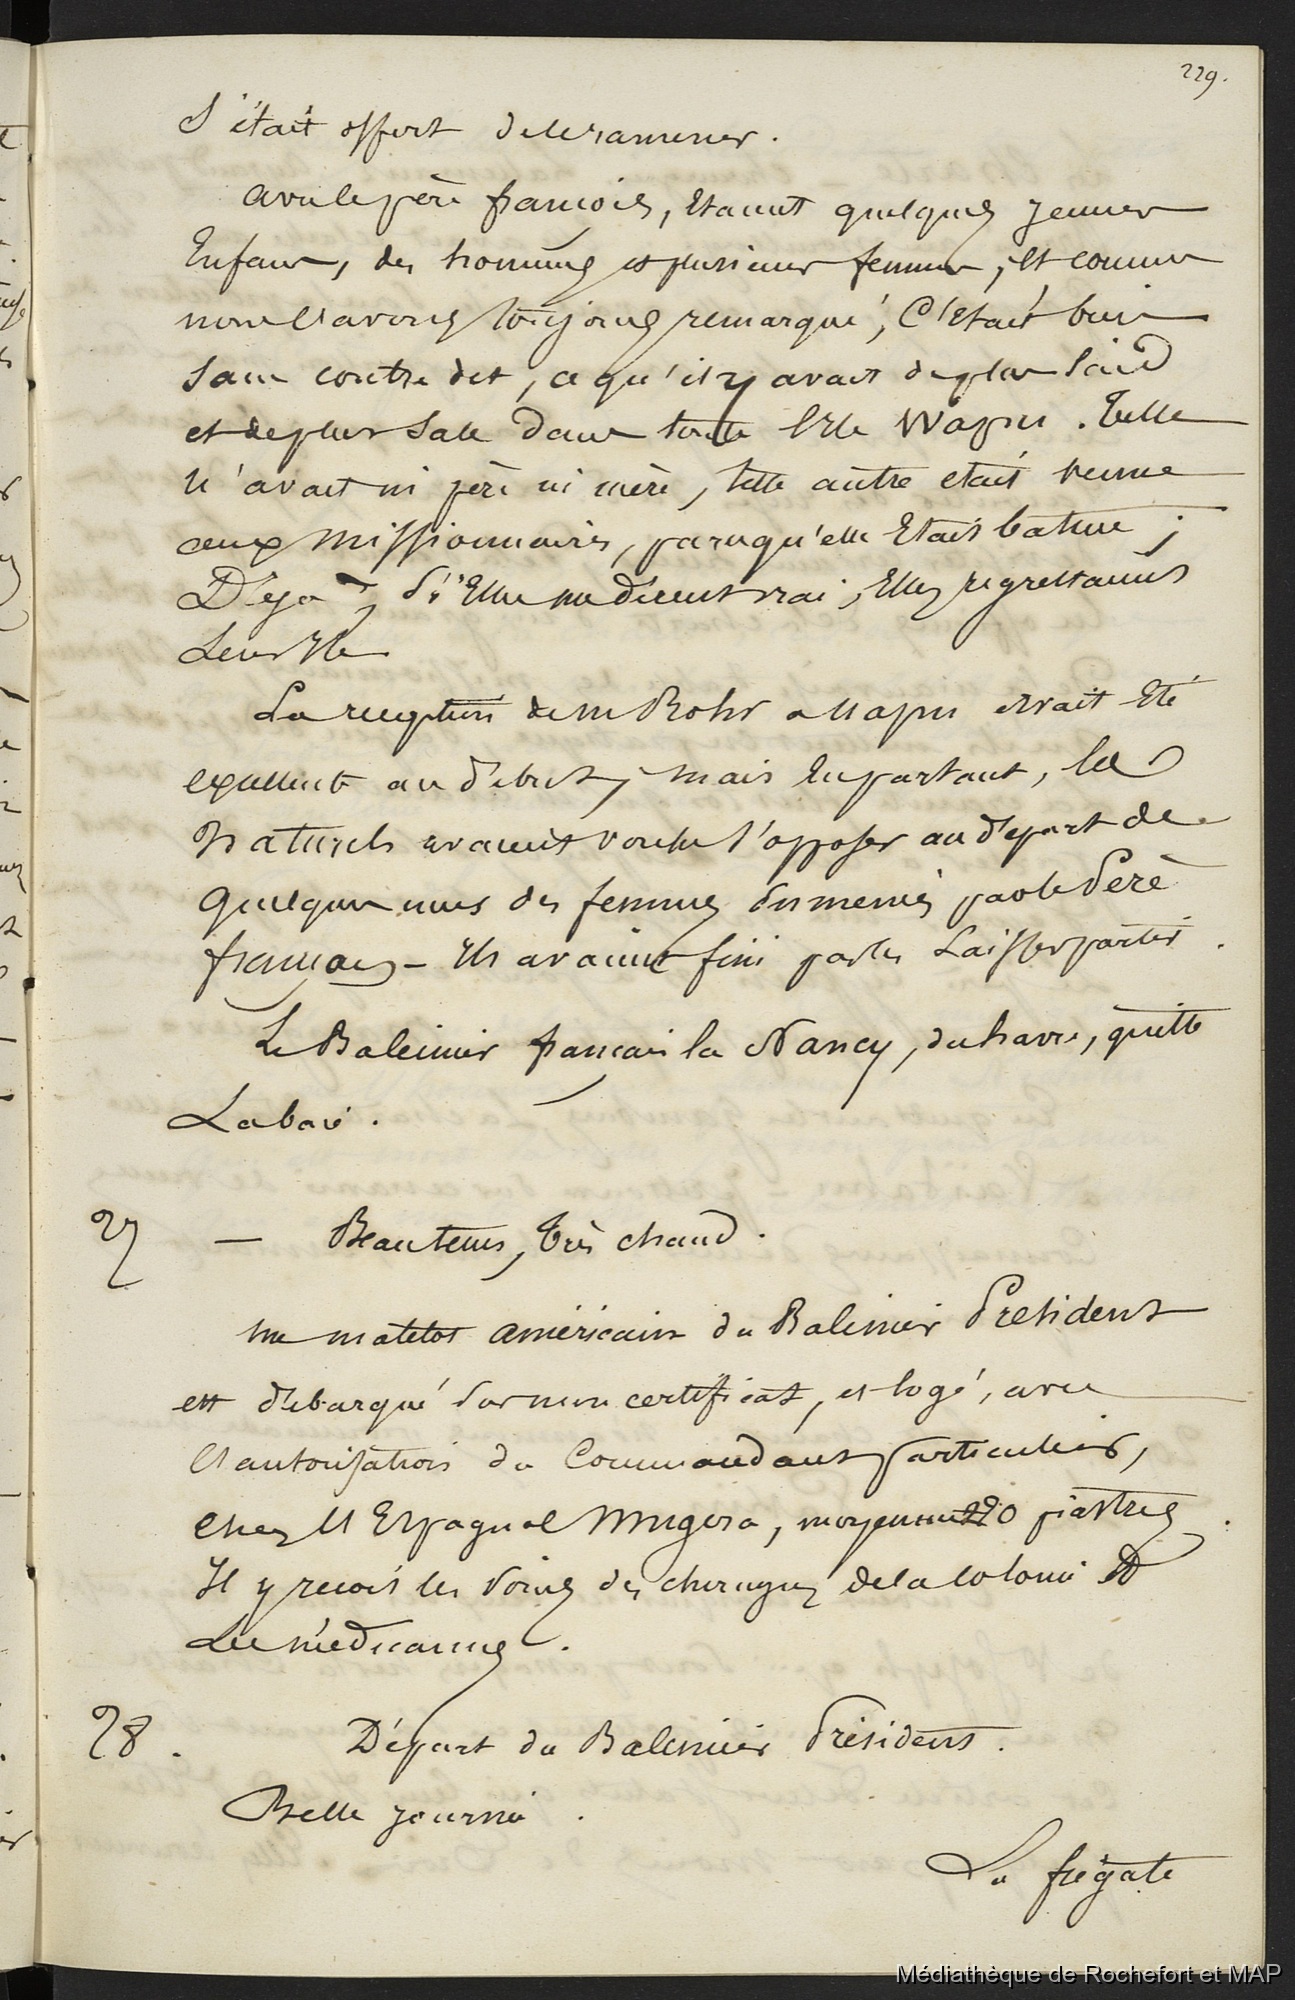 229.
S'était offert de le ramener.
avec le père françois, etaient quelques jeunes
Enfans, des hommes et plusieurs femmes, et comme
nous l'avons toujours remarqué, C'était bien
sans contre dit, ce qu'il y avait de plus laid
et de plus sale dans toute l'Ile Wapu. Telle
n'avait ni père ni mère, telle autre etait venue
aux missionnaires, parcequ'elle Etait battue;
Déja, si Elles me disent vrai, Elles regrettaient
Leur Ile
La reception de M Rohr a Uapu avait Eté
excellente au début, mais En partant, les
Naturels avaient voulu s'opposer au départ de
quelques unes des femmes emmenés par le Père
françois – Ils avaient fini par les Laisser partir.
Le Baleinier français la Nancy, du havre, quitte
La baie.
27 — Beau tems, très chaud.
un matelot américain du Baleinier President
est débarqué sur mon certificat, et logé, avec
l'autorisation du Commandant particulier,
chez l'Espagnol Mugera, moyennant 20 piastres.
Il y recoit les soins des chirurgiens de la colonie Et
Les médicamens.
28. Départ du Baleinier Président.
Belle journée.
La frégate
Médiathèque de Rochefort et MAP